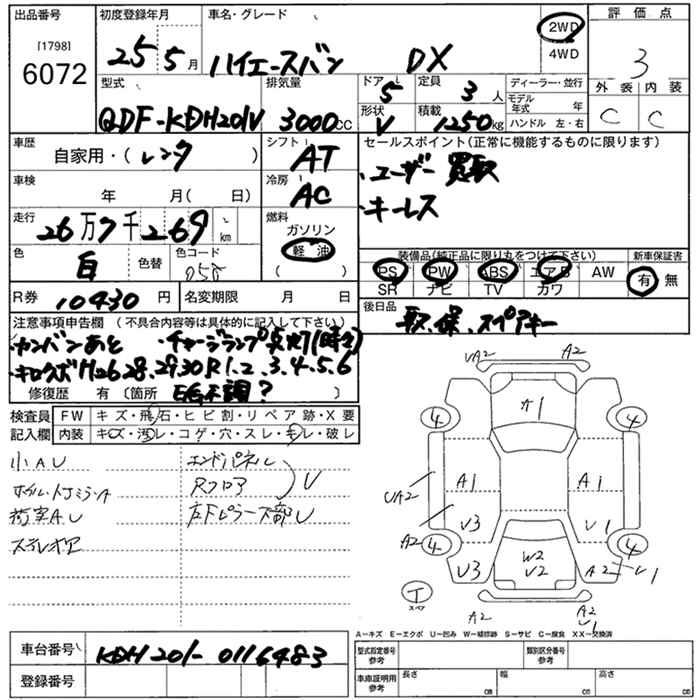 出品番号
[1798]
6072
初度登録年月
25 5 月
車名・グレード
ハイエースバン DX
2WD
4WD
評価点
3
外装 内装
C C
型式
QDF-KDH201V
排気量
3000 CC
ドア 5
形状 V
定員 3 人
積載 1250 kg
ディーラー・並行
モデル年式 年
ハンドル 左・右
車歴
自家用・( レンタ )
シフト
AT
車検
年 月( 日)
冷房
AC
走行
26万7千269 km
燃料
ガソリン
軽油
( )
色
白
色替
色コード
058
R券 10430 円
名変期限 月 日
セールスポイント(正常に機能するものに限ります)
・ユーザー買取
・キーレス
装備品(純正品に限り丸をつけて下さい)
PS PW ABS エアB AW
SR ナビ TV カワ
新車保証書
有 無
後日品
取、保、スペアキー
注意事項申告欄 (不具合内容等は具体的に記入して下さい)
・カンバンあと ・チャージランプ点灯(時々)
・キロクボH26.28.29.30 R1.2.3.4.5.6
修復歴 有〔箇所 E/G不調? 〕
検査員
記入欄
FW キズ・飛石・ヒビ割・リペア跡・X要
内装 キズ・汚レ・コゲ・穴・スレ・モレ・破レ
小AU
ホイル・ドアミラーA
荷室AU
ステレオア
エンドパネル
Rフロア
U
左Fピラー下部U
UA2
A2
A1
4
4
A1
A1
UA2
U3
U1
A2
4
4
U3
W2
U2
A2
U1
T
スペア
A2
A2
U1
A−キズ E−エクボ U−凹み W−補修跡 S−サビ C−腐食 XX−交換済
車台番号
KDH201-0116483
登録番号
型式指定番号
参考
類別区分番号
参考
車庫証明用
参考
長さ cm
幅 cm
高さ cm